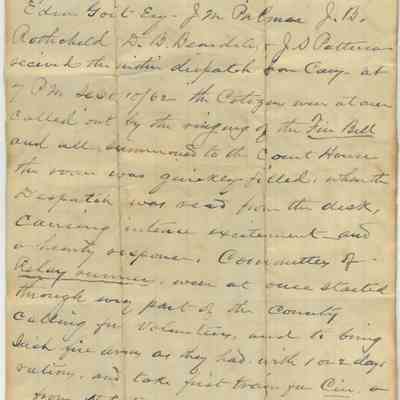 Edwin Esq. J. M. Palmer J. B.
Rothchild D. B. & J. S. Patterson
received the within dispatch from at
7 P.M. Sept 10/62 the Citizens were at once
called out by the ringing of the Fire Bell
and all summoned to the Court House
the room was quickly filled, when the
Despatch was read from the desk,
causing intense excitement and
a hearty response. Committees of
Relay runners, were at once started
through every part of the County
calling for Volunteers, and to bring
such fire arms as they had with 1 or 2 days
rations, and take first train for Cin. O
from